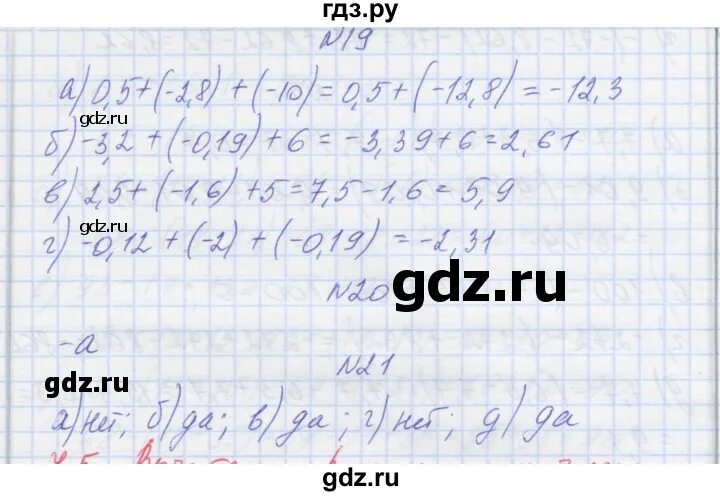 гдз.ру
N19
а) 0,5+(-2,8)+(-10)=0,5+(-12,8)=-12,3
gdz.ru
б) -3,2+(-0,19)+6=-3,39+6=2,61
в) 2,5+(-1,6)+5=7,5-1,6=5,9
gdz.ru
г) -0,12+(-2)+(-0,19)=-2,31
N20
gdz.ru
-а
N21
gdz.ru
а) нет; б) да; в) да; г) нет; д) да
gdz.ru